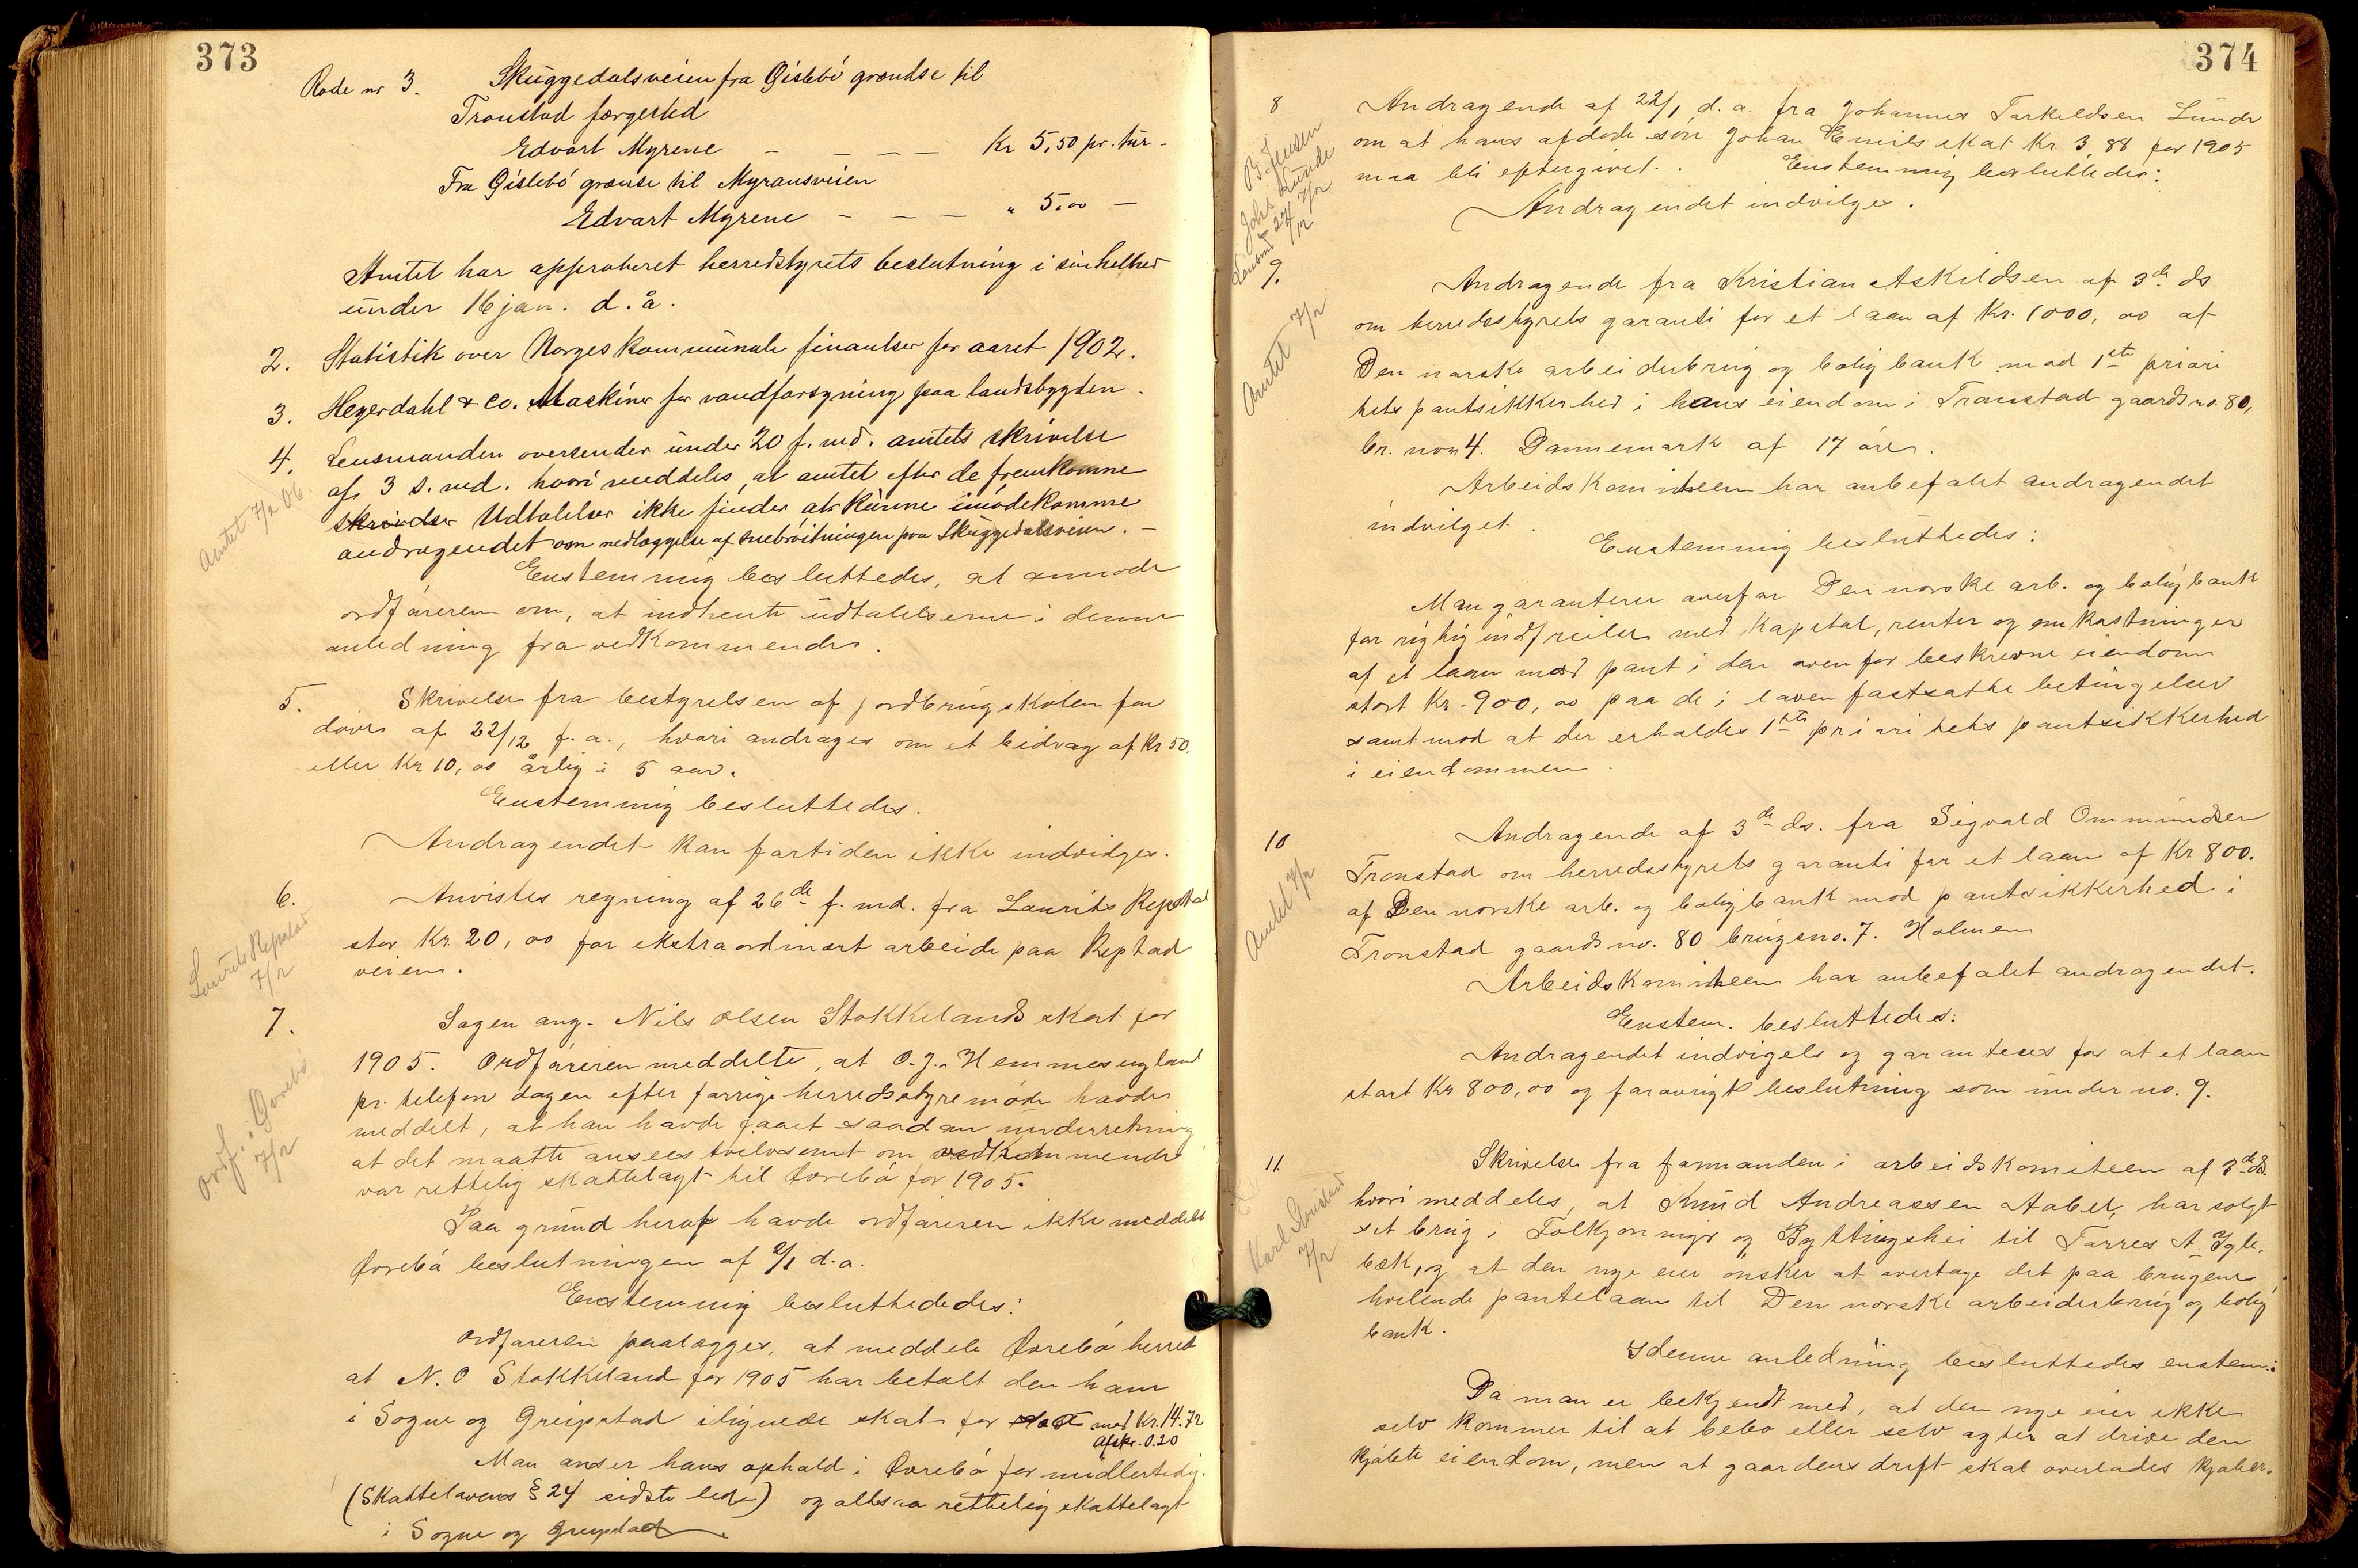 373
Rode nr 3. Skuggedalsveien fra Gislebö grændse til
Tronstad færgested
Edvart Myrene - - - - Kr 5,50 pr. tur -
Fra Gislebö grænse til Myransveien
Edvart Myrene - - - " 5,00 -
Amtet har approberet herredstyrets beslutning i sin helhed
under 16 jan. d. å.
2. Statistik over Norges kommunale finantser for aaret 1902.
3. Heyerdahl & Co. Maskiner for vandforsyning paa landsbygden.
4. Lensmanden oversender under 20 f. md. amtets skrivelse
af 3 s. md. hvori meddeles, at amtet efter de fremkomne
Amtet 7/2 06.
skrivelser Udtalelser ikke finder at kunne imödekomme
andragendet om nedlæggelse af snebröitningen paa Skuggedalsveien. -
Enstemmig besluttedes, at anmode
ordföreren om, at indhente udtalelserne i denne
anledning fra vedkommende.
5. Skrivelse fra bestyrelsen af jordbrugskolen for
døve af 22/12 f. a., hvori andrages om et bidrag af Kr 50.
eller Kr 10,00 årlig i 5 aar.
Enstemmig besluttedes.
Andragendet kan fortiden ikke indvilges.
6. Anvistes regning af 26de f. md. fra Laurits Repstad
stor Kr. 20,00 for ekstraordinært arbeide paa Repstad
veien.
Laurits Repstad
7/2
7. Sagen ang. Nils Olsen Stokkelands skat for
1905. Ordföreren meddelte, at O. J. Hemmesugland
pr. telefon dagen efter forrige herredsstyremöde havde
meddelt, at han havde faaet saadan underretning
at det maatte ansees tvilvsomt om vedkommende
var rettelig skattelagt tilÖvrebö for 1905.
Ordf. i Övrebö
7/2
Paa grund heraf havde ordföreren ikke meddelt
Övrebö beslutningen af 2/1 d. a.
Enstemmig besluttededes:
Ordföreren paalægges, at meddele Övrebö herred
at N. O Stokkeland for 1905 har betalt den ham
i Sogne og Greipstad ilignede skat for med Kr. 14.72
Afskr. 0.20
Man anser hans ophold i Övrebö for midlertidig.
(Skattelovens § 24 sidste led) og altsaa rettelig skattelagt
i Sogne og Greipstad.
374
8 Andragende af 22/1 d. a. fra Johannes Tarkeldsen Lunde
om at hans afdøde søn Johan Emils skat Kr. 3,88 for 1905
maa bli eftergivet. Enstemmig besluttedes:
Andragendet indvilges.
B. Jensen
Johs Lunde
7/2
Lensmd 24/12
9. Andragende fra Kristian Askildsen af 3de ds
om herredsstyrets garanti for et laan af Kr. 1000,00 af
Den norske arbeiderbrug og boligbank mod 1ste priori
tets pantsikkerhed i hans eiendom i Tronstad gaardsno. 80,
br. no 4. Dannemark af 17 öre.
Amtet 7/2
Arbeidskomiteen har anbefalet andragendet
indvilget.
Enstemmig besluttedes:
Man garanterer overfor Den norske arb. og boligbank
for rigtig indfrielse med kapital, renter og omkostninger
af et laan mod pant i den ovenfor beskrevne eiendom
stort Kr. 900,00 paa de i loven fastsatte betingelser
samt mod at der erholdes 1ste prioritets pantsikkerhed
i eiendommen.
10 Andragende af 3de ds. fra Sigvald Ommundsen
Tronstad om herredsstyrets garanti for et laan af Kr 800.
af Den norske arb. og boligbank mod pantsikkerhed i
Tronstad gaardsno. 80 brugsno. 7. Holmen
Amtet 7/2
Arbeidskomiteen har anbefalet andragendet.
Enstem. besluttedes:
Andragendet indvigels og garanteres for at et laan
stort Kr 800,00 og forøvrigt beslutning som under no. 9.
11. Skrivelse fra formanden i arbeidskomiteen af 3de ds.
hvori meddeles, at Knud Andreassen Aabel, har solgt
set brug i Folkjonnigs og Byttingshei til Tarres A. Igle.
bæk, og at den nye eier önsker at overtage det paa brugene
hvilende pantelaan til Den norske arbeiderbrug og bolig
bank.
7/2
I denne anledning besluttedes enstem.:
Da man er bekjendt med, at den nye eier ikke
selv kommer til at bebo eller selv agter at drive den
kjøbte eiendom, men at gaardens drift skal overlades kjøber.